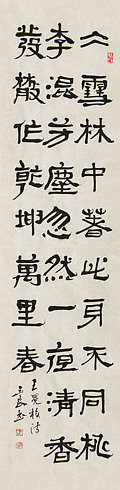 仌雪林中著此身不同桃
李混芳塵忽然一夜清香
發散作乾坤萬里春
王冕梅詩